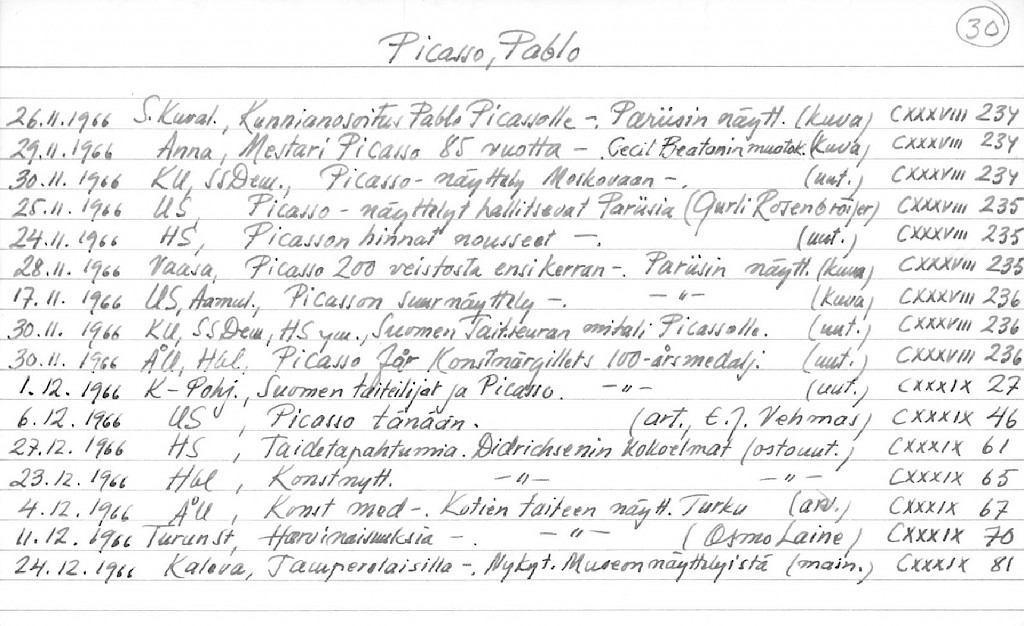 30
Picasso, Pablo
26.11.1966 S. Kuval., Kunnianosoitus Pablo Picassolle -. Pariisin näytt. (kuva) CXXXVIII 234
29.11.1966 Anna, Mestari Picasso 85 vuotta -. Cecil Beatonin muotok. (kuva) CXXXVIII 234
30.11.1966 KU, SSDem., Picasso-näyttely Moskovaan -. (uut.) CXXXVIII 234
25.11.1966 US, Picasso-näyttelyt hallitsevat Pariisia (Gurli Rosenbröijer) CXXXVIII 235
24.11.1966 HS, Picasson hinnat nousseet -. (uut.) CXXXVIII 235
28.11.1966 Vaasa, Picasso 200 veistosta ensi kerran -. Pariisin näytt. (kuva) CXXXVIII 235
17.11.1966 US, Aamul., Picasson suurnäyttely -. -"- (kuva) CXXXVIII 236
30.11.1966 KU, SSDem, HS ym., Suomen Taiteseuran mitali Picassolle. (uut.) CXXXVIII 236
30.11.1966 ÅU, Hbl, Picasso får Konstmärgillets 100-årsmedalj. (uut.) CXXXVIII 236
1.12.1966 K-Pohj., Suomen taiteilijat ja Picasso. -"- (uut.) CXXXIX 27
6.12.1966 US, Picasso tänään. (art., E.J. Vehmas) CXXXIX 46
27.12.1966 HS, Taidetapahtumia. Didrichsenin kokoelmat (ostouut.) CXXXIX 61
23.12.1966 Hbl, Konstnytt. -"- -"- CXXXIX 65
4.12.1966 ÅU, Konst med -. Kotien taiteen näytt. Turku (arv.) CXXXIX 67
11.12.1966 Turunst, Harvinaisuuksia -. -"- (Osmo Laine) CXXXIX 70
24.12.1966 Kaleva, Tamperelaisilla -, Nykyt. Museon näyttelyistä (main.) CXXXIX 81